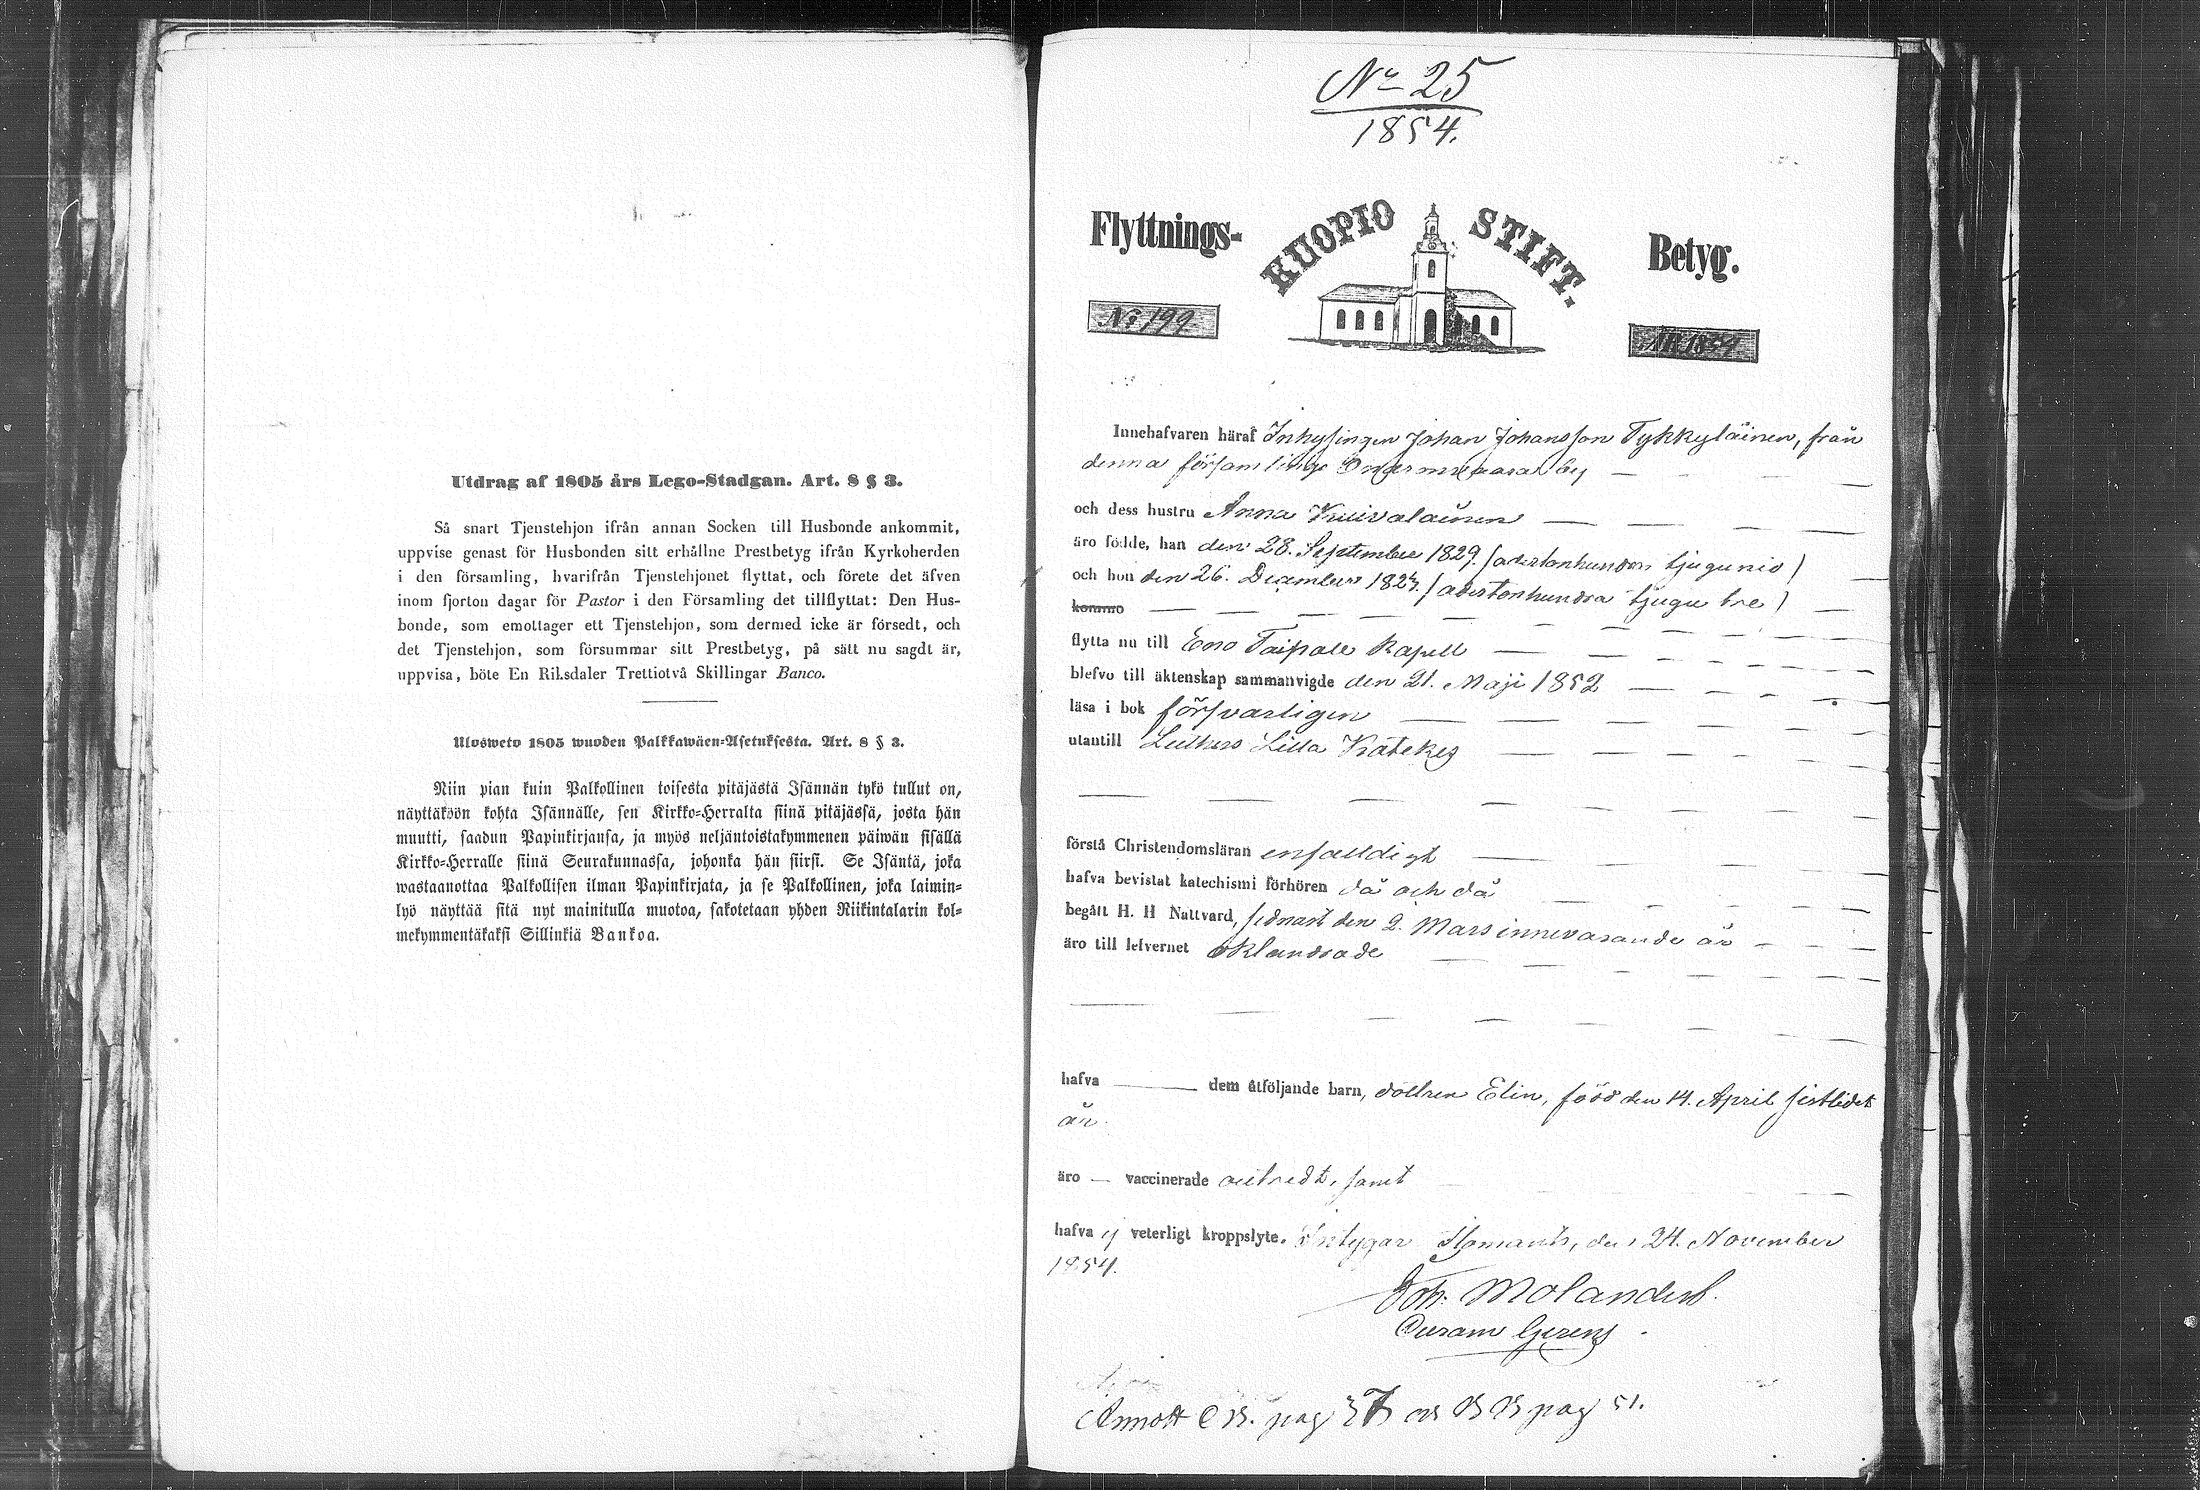 Utdrag af 1805 års Lego-Stadgan. Art. 8 § 3.
Så snart Tjenstehjon ifrån annan Socken till Husbonde ankommit,
uppvise genast för Husbonden sitt erhållne Prestbetyg ifrån Kyrkoherden
i den församling, hvarifrån Tjenstehjonet flyttat, och förete det äfven
inom fjorton dagar för Pastor i den Församling det tillflyttat: Den Hus-
bonde, som emottager ett Tjenstehjon, som dermed icke är försedt, och
det Tjenstehjon, som försummar sitt Prestbetyg, på sätt nu sagdt är,
uppvisa, böte En Riksdaler Trettiotvå Skillingar Banco.
Ulosweto 1805 wuoden Palkkawäen-Asetuksesta. Art. 8 § 3.
Niin pian kuin Palkollinen toisesta pitäjästä Isännän tykö tullut on,
näyttäköön kohta Isännälle, sen Kirkko-Herralta siinä pitäjässä, josta hän
muutti, saadun Papinkirjansa, ja myös neljäntoistakymmenen päiwän sisällä
Kirkko-Herralle siinä Seurakunnassa, johonka hän siirsi. Se Isäntä, joka
wastaanottaa Palkollisen ilman Papinkirjata, ja se Palkollinen, joka laimin-
lyö näyttää sitä nyt mainitulla muotoa, sakotetaan yhden Riikintalarin kol-
mekymmentäkaksi Sillinkiä Bankoa.
No 25
1854.
Flyttnings- KUOPIO STIFT. Betyg.
No 199 1854
Innehafvaren häraf Inhysingen Johan Johansson Tykkyläinen, från
denna församlings by
och dess hustru Anna Kuivalainen
äro födde, han den 28. September 1829. (adertonhundra tjugunio)
och hon den 26. December 1823. (adertonhundra tjugu tre)
kommo
flytta nu till Eno Taipale Kapell
blefvo till äktenskap sammanvigde den 21. Maji 1852
läsa i bok försvarligen
utantill Luthers Lilla Katekes
förstå Christendomsläran enfalldigt
hafva bevistat katechismi förhören då och då
begått H. H Nattvard, sednast den 2. Mars innevarande år
äro till lefvernet oklandrade
hafva dem åtföljande barn, dottren Elin, född den 14. April sistlidet
år.
äro vaccinerade samt
hafva ej veterligt kroppslyte. Intygar Ilomants, den 24. November
1854.
Joh: Molander
Curam Gerens
Annott C B. pag 37 BB pag 51.